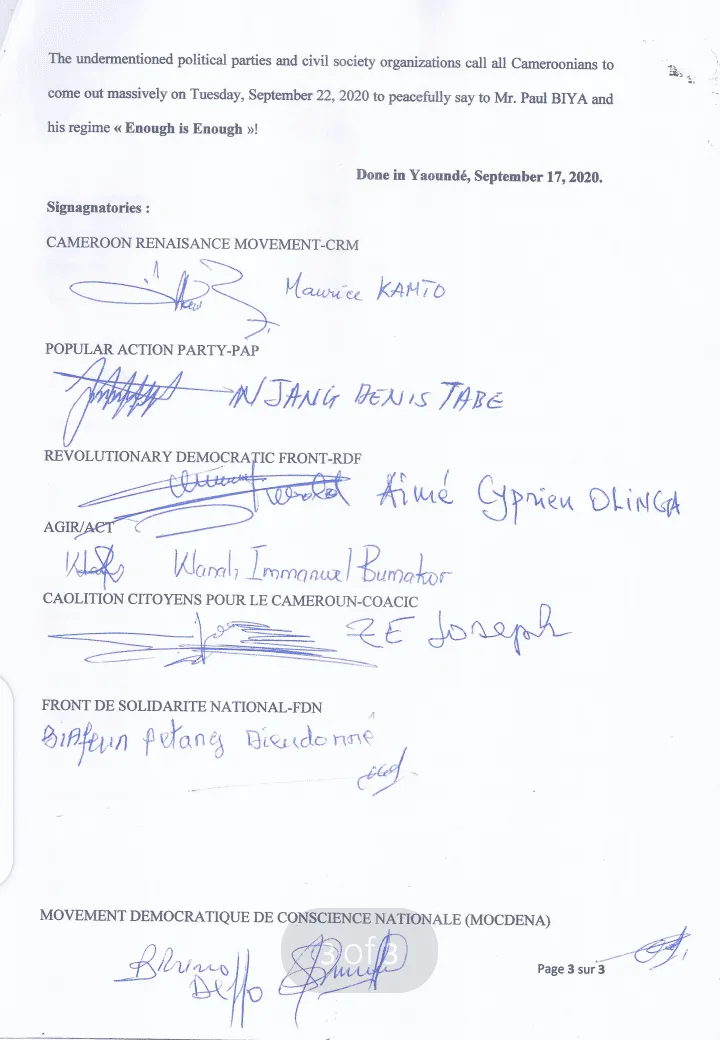 The undermentioned political parties and civil society organizations call all Cameroonians to
come out massively on Tuesday, September 22, 2020 to peacefully say to Mr. Paul BIYA and
his regime « Enough is Enough »!
Done in Yaoundé, September 17, 2020.
Signagnatories :
CAMEROON RENAISANCE MOVEMENT-CRM
Maurice KAMTO
POPULAR ACTION PARTY-PAP
NJANG DENIS TABE
REVOLUTIONARY DEMOCRATIC FRONT-RDF
Aimé Cyprien OLINGA
AGIR/ACT
Immanuel Bumakor
CAOLITION CITOYENS POUR LE CAMEROUN-COACIC
ZE Joseph
FRONT DE SOLIDARITE NATIONAL-FDN
Dieudonné
MOVEMENT DEMOCRATIQUE DE CONSCIENCE NATIONALE (MOCDENA)
Bruno
3 of 3
Page 3 sur 3